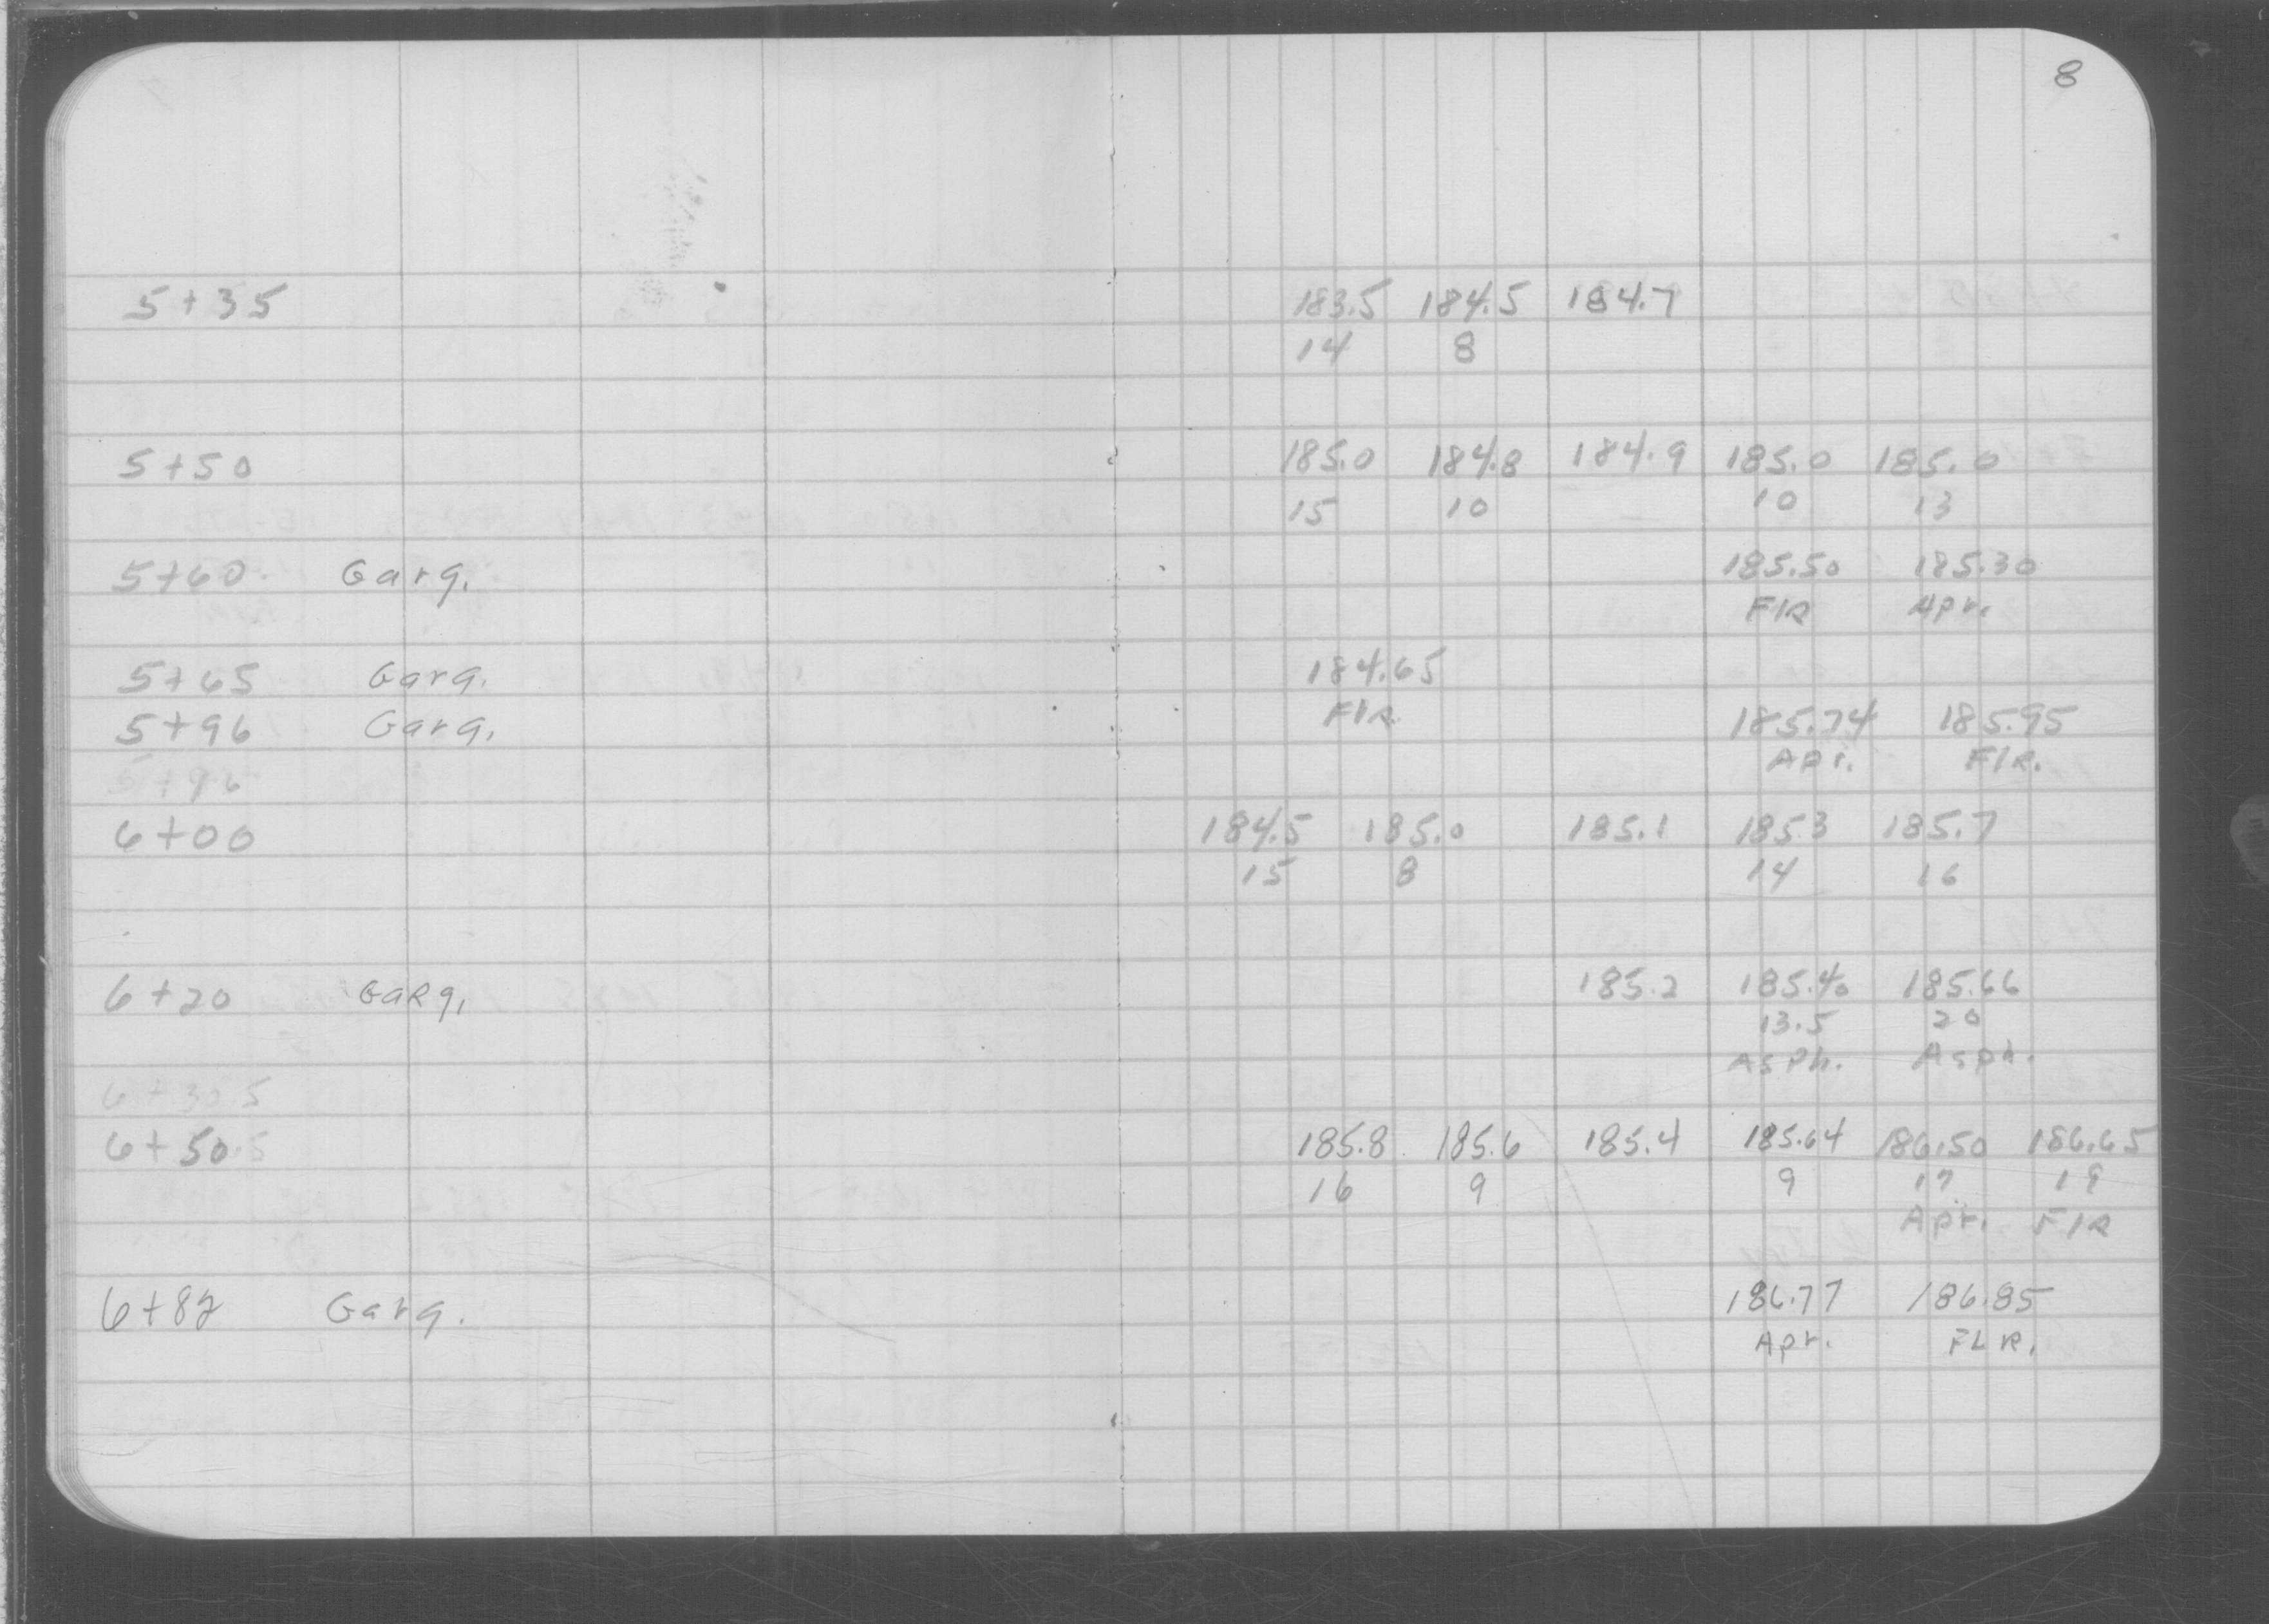 8
5+35 183.5 184.5 184.7
14 8
5+50 185.0 184.8 184.9 185.0 185.0
15 10 10 13
5+60 Garg. 185.50 185.30
FlR Apr.
5+65 Garg. 184.65
FlR
5+96 Garg. 185.74 185.95
Apr. FlR.
5+96
6+00 184.5 185.0 185.1 185.3 185.7
15 8 14 16
6+20 GaRg. 185.2 185.40 185.66
13.5 20
Asph. Asph.
6+30.5
6+50.5 185.8 185.6 185.4 185.64 186.50 186.65
16 9 9 17 19
Apr. FlR
6+82 Garg. 186.77 186.85
Apr. FLR.